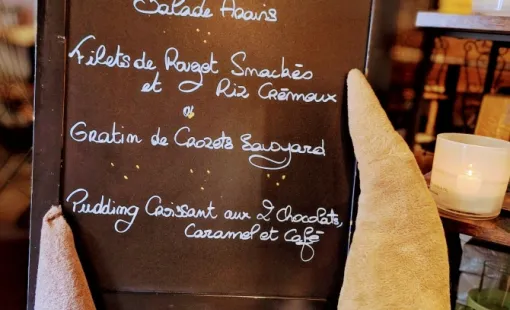 Salade Hoans
Filets de Rouget Smackés
et Riz Crémoux
ou
Gratin de Crozets Savoyard
Pudding Croissant aux 2 chocolats,
Caramel et Café